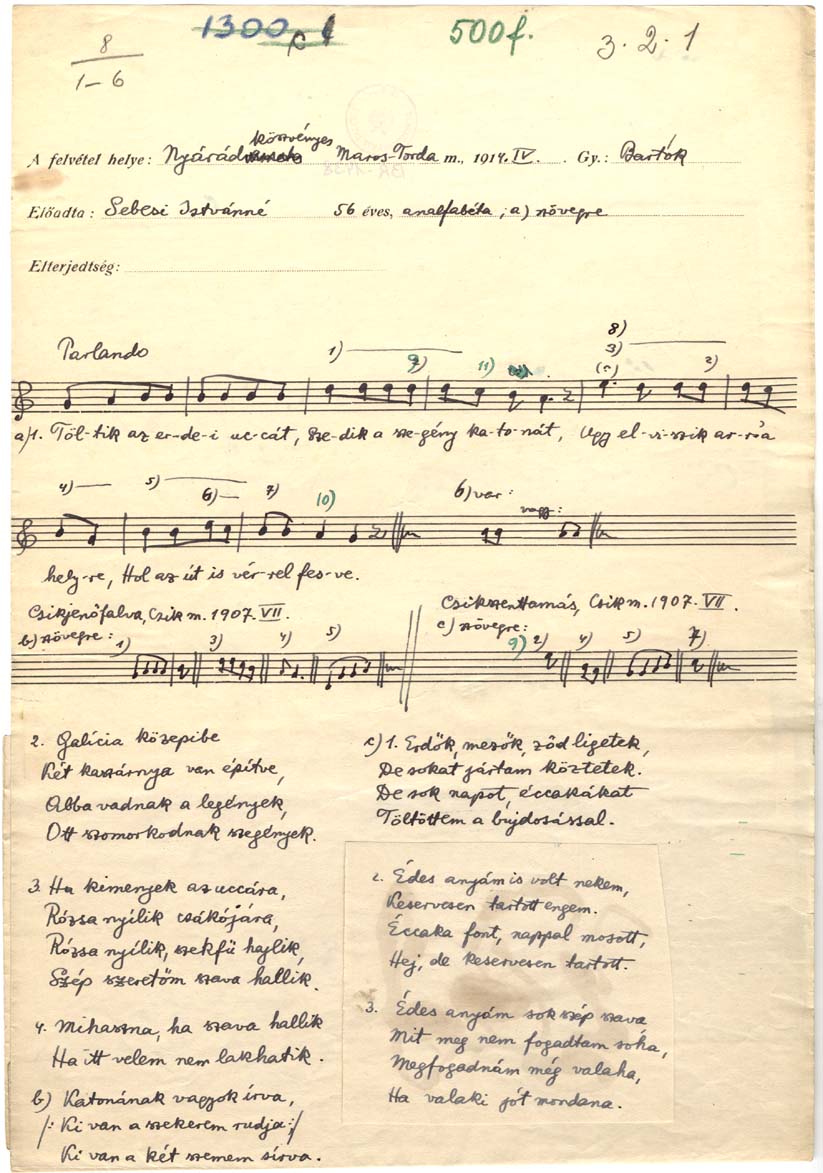 8
1–6
1300 c 1
500f.
3.2.1
A felvétel helye: Nyárádköszvényes Maros-Torda m., 1914. IV. Gy.: Bartók
Előadta: Sebesi Istvánné 56 éves, analfabéta; a) szövegre
Elterjedtség:
8)
Parlando 1) 3)
9) 11) (c) 2)
a) 1. Töl-tik az er-de-i uc-cát, Sze-dik a sze-gény ka-to-nát, Ugy el-vi-szik ar-ra a
4) 5) 6) 7) 10) b) var: vagy:
hely-re, Hol az út is vér-rel fes-ve.
Csikjenőfalva, Csik m. 1907. VII.
b) szövegre: 1) 3) 4) 5)
Csikszenttamás, Csik m. 1907. VII.
c) szövegre: 9) 2) 4) 5) 7)
2. Galícia közepibe
Két kaszárnya van építve,
Abba vadnak a legények,
Ott szomorkodnak szegények.
3. Ha kimenyek az uccára,
Rózsa nyílik csákójára,
Rózsa nyílik, szekfü hajlik,
Szép szeretőm szava hallik.
4. Mihaszna, ha szava hallik
Ha itt velem nem lakhatik.
b) Katonának vagyok írva,
/: Ki van a szekerem rudja :/
Ki van a két szemem sírva.
c) 1. Erdők, mezők, ződ ligetek,
De sokat jártam köztetek.
De sok napot, éccakákat
Töltöttem a bujdosással.
2. Édes anyám is volt nekem,
Keservesen tartott engem.
Éccaka font, nappal mosott,
Hej, de keservesen tartott.
3. Édes anyám sok szép szava
Mit meg nem fogadtam sóha,
Megfogadnám még valaha,
Ha valaki jót mondana.